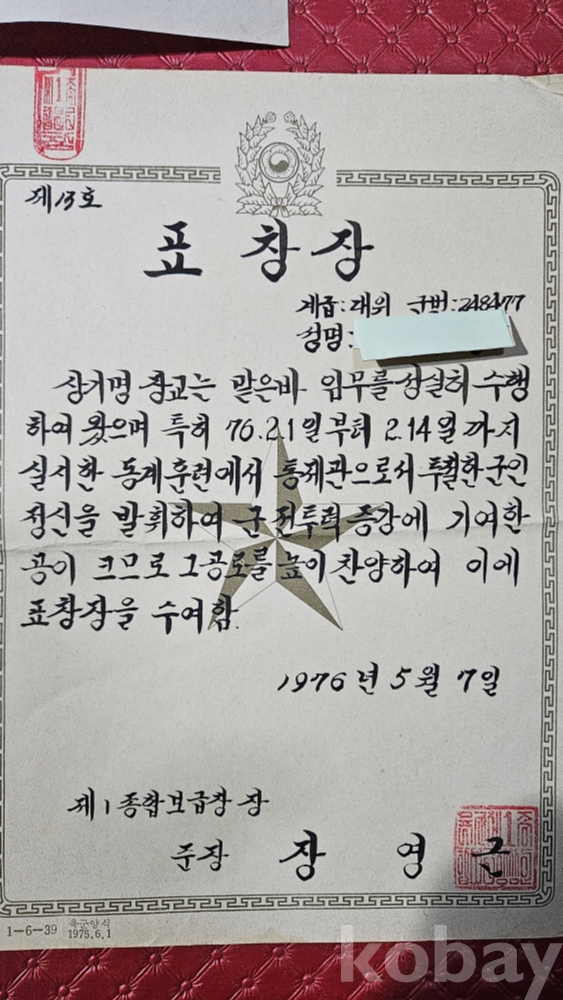 제13호
표창장
계급:대위 군번:248477
성명:
상기명 장교는 맡은바 임무를 성실히 수행
하여 왔으며 특히 76.2.1일 부터 2.14일 까지
실시한 동계훈련에서 통제관으로서 투철한 군인
정신을 발휘하여 군 전투력 증강에 기여한
공이 크므로 그공로를 높이 찬양하여 이에
표창장을 수여함.
1976년 5월 7일
제1종합보급창장
준장 장영근
1-6-39 육군양식 1975.6.1
kobay